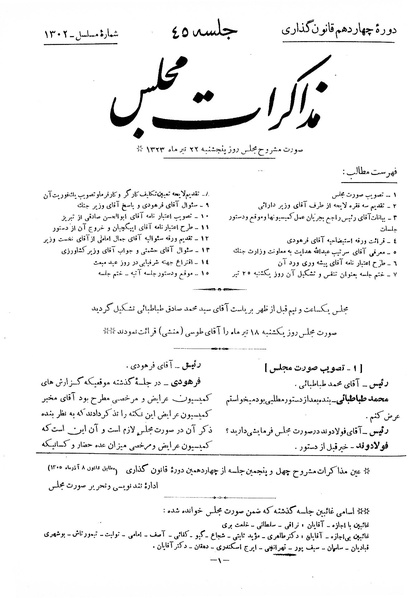 دورهٔ چهاردهم قانون گذاری
جلسه ۴۵
شمارهٔ مسلسل - ۱۳۰۲
مذاکرات مجلس
صورت مشروح مجلس روز پنجشنبه ۲۲ تیر ماه ۱۳۲۳
فهرست مطالب :
۱ - تصویب صورت مجلس
۲ - تقدیم سه فقره لایحه از طرف آقای وزیر دارائی
۳ - بیانات آقای رئیس راجع بجریان عمل کمیسیونها و موقع و دستور
جلسات
۴ - قرائت ورقه استیضاحیه آقای فرهودی
۵ - معرفی آقای سرتیپ عبدالله هدایت به معاونت وزارت جنگ
۶ - طرح اعتبار نامه آقای پیشه وری و رد آن
۷ - ختم جلسه بعنوان تنفس و تشکیل آن روز یکشنبه ۲۵ تیر
۸ - تقدیم لایحه تعیین تکلیف کارگر و کارفرما و تصویب یکفوریت آن
۹ - سئوال آقای فرهودی و پاسخ آقای وزیر جنگ
۱۰ - تصویب اعتبار نامه آقای ابوالحسن صادقی از تبریز
۱۱ - طرح اعتبار نامه آقای ایپکچیان و خروج آن از دستور
۱۲ - تقدیم ورقه سئوالیه آقای جمال امامی از آقای نخست وزیر
۱۳ - سئوال آقای حشمتی و جواب آقای وزیر کشاورزی
۱۴ - اقتراح جهة شرفیابی در روز عید مبعث
۱۵ - موقع و دستور جلسه آتیه - ختم جلسه
مجلس یکساعت و نیم قبل از ظهر بریاست آقای سید محمد صادق طباطبائی تشکیل گردید
صورت مجلس روز یکشنبه ۱۸ تیر ماه را آقای طوسی (منشی) قرائت نمودند
[ ۱ - تصویب صورت مجلس ]
رئیس - آقای محمد طباطبائی.
محمد طباطبائی - بنده بعد از دستور مطلبی بود میخواستم
عرض کنم.
رئیس - آقای فولادوند در صورت مجلس فرمایشی دارید ؟
فولادوند - خیر قبل از دستور.
رئیس - آقای فرهودی.
فرهودی - در جلسهٔ گذشته موقعیکه گزارش های
کمیسیون عرایض و مرخصی مطرح بود آقای مخبر
کمیسیون عرایض این نکته را تذکر دادند که به نظر بنده
ذکر آن در صورت مجلس لازم است و آن این است که
کمیسیون عرایض و مرخصی میزان عده حضار و کسانیکه
عین مذاکرات مشروح چهل و پنجمین جلسه از چهاردهمین دورهٔ قانون گذاری (مطابق قانون ۸ آذر ماه ۱۳۰۵)
ادارهٔ تند نویسی و تحریر صورت مجلس
اسامی غائبین جلسه گذشته که ضمن صورت مجلس خوانده شده :
غائبین با اجازه - آقایان : نراقی - سلطانی - خلعت بری
غائبین بی اجازه - آقایان : دکتر طاهری - مؤید ثابتی - شجاع - گیو - کفائی - آصف - امامی - نوابت - تیمورتاش - بوشهری
قبادیان - سامان - سیف پور - تهرانچی - ایرج اسکندری - دهقان - دکتر آقایان.
-۱-